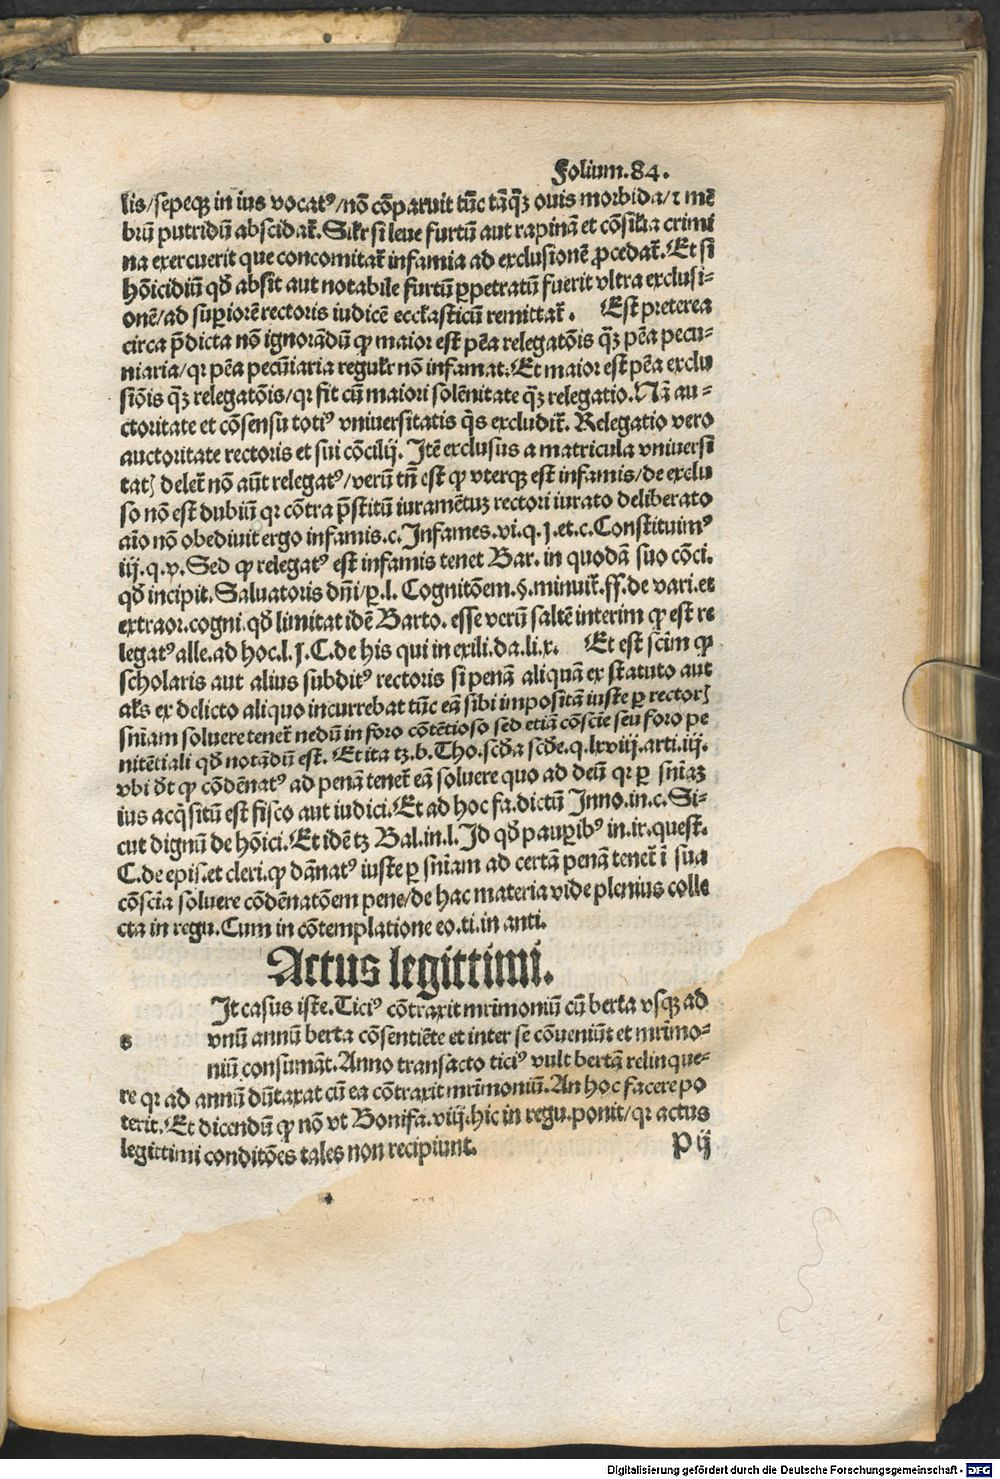 Folium.84.
lis/sepeqꝫ in ius vocatꝰ/nõ cõparuit tũc tãq̃ꝫ ouis morbida/⁊ mẽ
brũ putridũ abscidat̃. Sil̃r si leue furtũ aut rapinã et cõsil̃ia crimi
na exercuerit que concomitat̃ infamia ad exclusionẽ ꝓcedat̃. Et si
hõicidiũ qð absit aut notabile furtũ ꝑpetratũ fuerit vltra exclusi-
onẽ/ad suꝑiorẽ rectoris iudicẽ ecclãsticũ remittat̃. Est preterea
circa p̃dicta nõ ignorãdũ ꝙ maior est pẽa relegatõis q̃ꝫ pẽa pecu-
niaria/qꝛ pẽa pecũiaria regul̃r nõ infamat. Et maior est pẽa exclu
siõis q̃ꝫ relegatõis/qꝛ fit cũ maiori solẽnitate q̃ꝫ relegatio. Nã au-
ctoritate et cõsensu totiꝰ vniuersitatis q̃s excludit̃. Relegatio vero
auctoritate rectoris et sui cõcilij. Itẽ exclusus a matricula vniuersi
tatꝭ delet̃ nõ aũt relegatꝰ/verũ tñ est ꝙ vterqꝫ est infamis/de exclu
so nõ est dubiũ qꝛ cõtra p̃stitũ iuramẽtuꝫ rectori iurato deliberato
aĩo nõ obediuit ergo infamis.c.Infames.vi.q.j.et.c.Constituimꝰ
iij.q.v. Sed ꝙ relegatꝰ est infamis tenet Bar. in quodã suo cõci.
qð incipit. Saluatoris dñi/ꝑ.l. Cognitõem.§.minuit̃.ff.de vari.et
extraor.cogni.qð limitat idẽ Barto. esse verũ saltẽ interim ꝙ est re
legatꝰ alle.ad hoc.l.j.C.de his qui in exili.da.li.x. Et est scĩm ꝙ
scholaris aut alius subditꝰ rectoris si penã aliquã ex statuto aut
al̃s ex delicto aliquo incurrebat tũc eã sibi impositã iuste ꝑ rectorꝭ
sñiam soluere tenet̃ nedũ in foro cõtẽtioso sed etiã cõscĩe seu foro pe
nitẽtiali qð notãdũ est. Et ita tꝫ.b.Tho.scðа scðe.q.lxviij.arti.iij.
vbi ðt ꝙ cõdẽnatꝰ ad penã tenet̃ eã soluere quo ad deũ qꝛ ꝑ sñiaꝫ
ius acq̃situ̅ est fisco aut iudici. Et ad hoc fa.dictũ Inno.in.c. Si-
cut dignũ de hõici. Et idẽ tꝫ Bal.in.l. Id qð pauꝑibꝰ in.ir.quest.
C.de epis.et cleri.ꝙ dãnatꝰ iuste ꝑ sñiam ad certã penã tenet̃ ĩ sua
cõscĩa soluere cõdẽnatõem pene/de hac materia vide plenius colle
cta in regu. Cum in cõtemplatione eo.ti.in anti.
Actus legittimi.
It casus iste. Ticiꝰ cõtraxit mr̃imoniũ cũ berta vsqꝫ ad
s vnũ annũ berta cõsentiẽte et inter se cõueniũt et mr̃imo-
niũ consumãt. Anno transacto ticiꝰ vult bertã relinque-
re qꝛ ad annũ dũtaxat cũ ea cõtraxit mr̃imoniũ. An hoc facere po
terit. Et dicendũ ꝙ nõ vt Bonifa.viij.hic in regu.ponit/qꝛ actus
legittimi conditões tales non recipiunt.
P ij
Digitalisierung gefördert durch die Deutsche Forschungsgemeinschaft - DFG